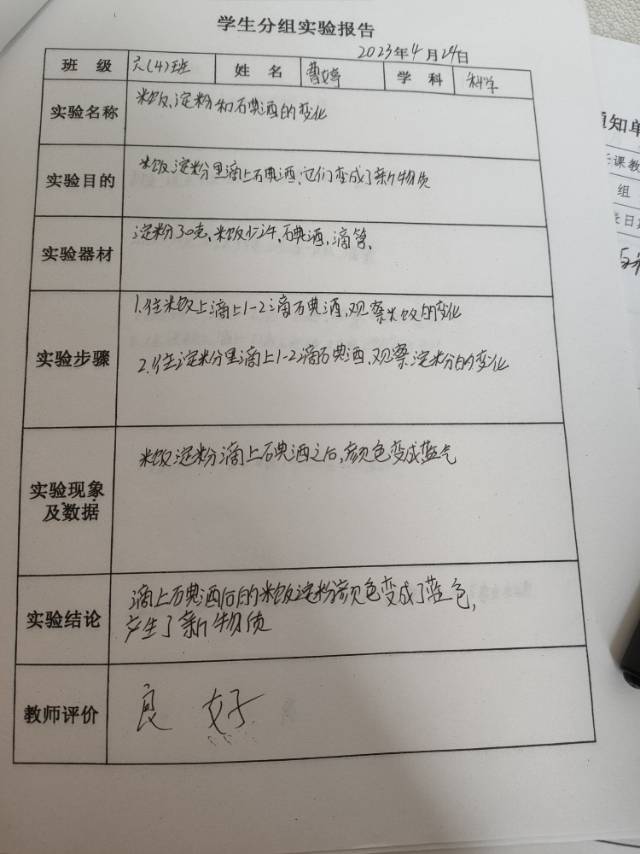 学生分组实验报告
2023年4月24日
班 级 六(4)班 姓 名 曹婷 学 科 科学
实验名称 米饭、淀粉和石典酒的变化
实验目的 米饭淀粉里滴上石典酒,它们变成了新物质
实验器材 淀粉30克、米饭少许、石典酒,滴管、
实验步骤 1.往米饭上滴上1-2滴石典酒,观察米饭的变化
2.往淀粉里滴上1-2滴石典酒,观察淀粉的变化
实验现象
及数据
米饭淀粉滴上石典酒之后,颜色变成蓝气
实验结论 滴上石典酒后的米饭淀粉颜色变成了蓝色,
产生了新物质
教师评价 良 好
通知单
任课教
组